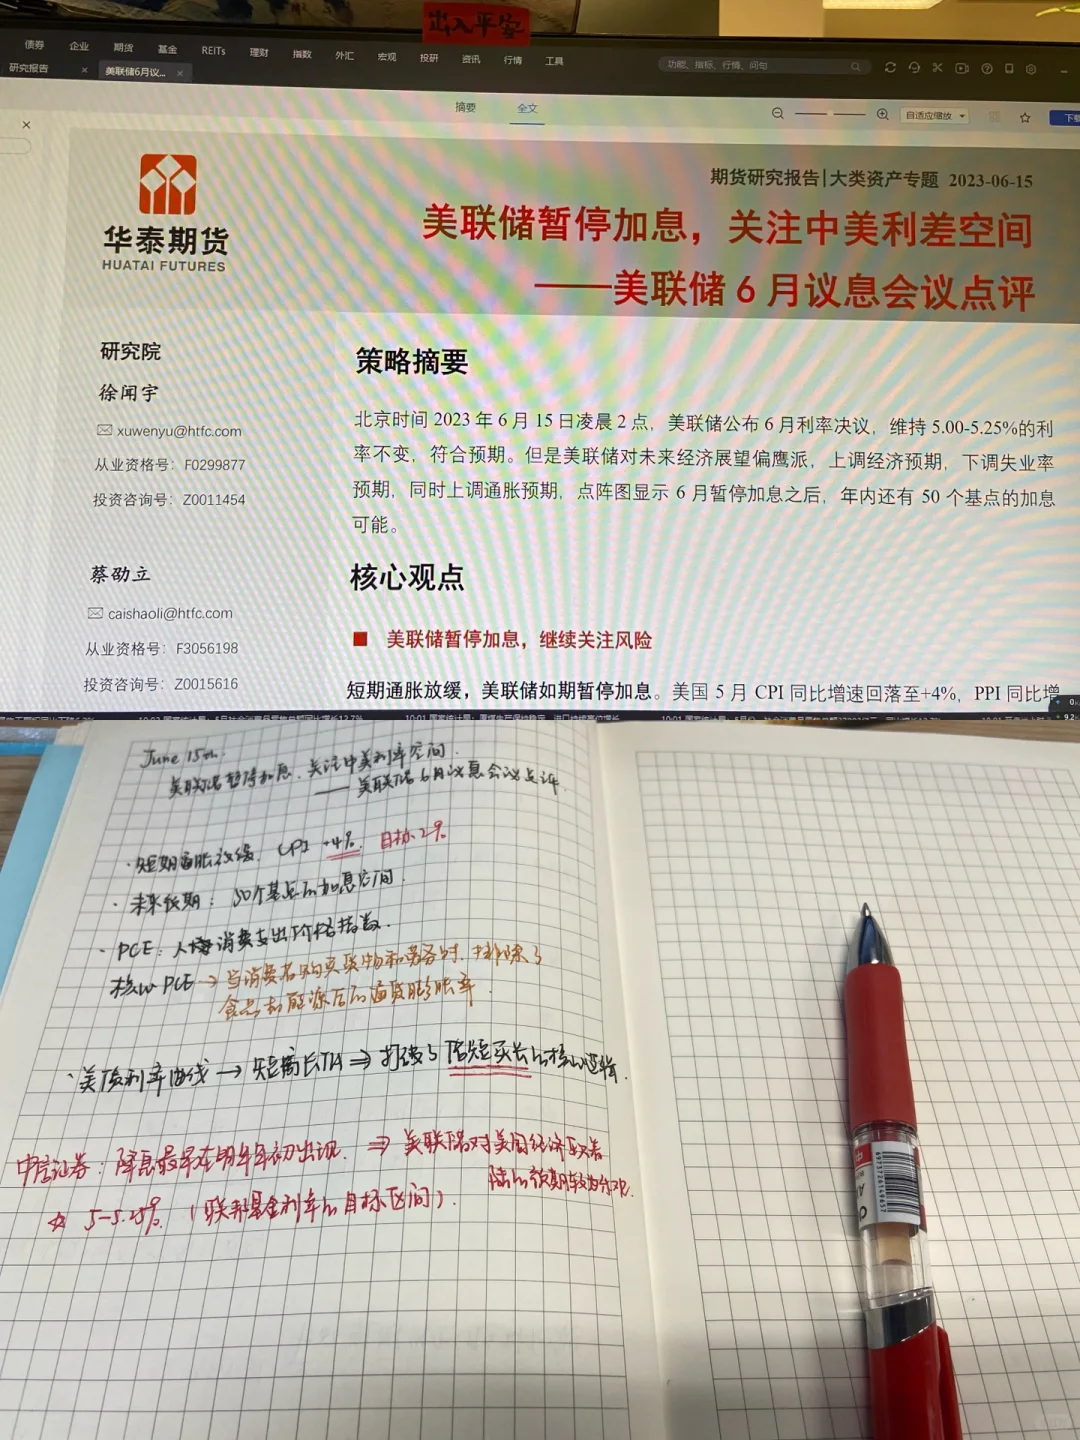 出入平安
债券 企业 期货 基金 REITs 理财 指数 外汇 宏观 投研 资讯 行情 工具
功能、指标、行情、问句
研究报告 × 美联储6月议... ×
摘要 全文
自适应缩放
下载
华泰期货
HUATAI FUTURES
期货研究报告|大类资产专题 2023-06-15
美联储暂停加息，关注中美利差空间
——美联储 6 月议息会议点评
研究院
徐闻宇
xuwenyu@htfc.com
从业资格号：F0299877
投资咨询号：Z0011454
蔡劭立
caishaoli@htfc.com
从业资格号：F3056198
投资咨询号：Z0015616
策略摘要
北京时间 2023 年 6 月 15 日凌晨 2 点，美联储公布 6 月利率决议，维持 5.00-5.25%的利
率不变，符合预期。但是美联储对未来经济展望偏鹰派，上调经济预期，下调失业率
预期，同时上调通胀预期，点阵图显示 6 月暂停加息之后，年内还有 50 个基点的加息
可能。
核心观点
■ 美联储暂停加息，继续关注风险
短期通胀放缓，美联储如期暂停加息。美国 5 月 CPI 同比增速回落至+4%，PPI 同比增
June 15th.
美联储暂停加息、关注中美利率空间.
—— 美联储6月议息会议点评
· 短期通胀放缓. CPI +4%. 目标2%
· 未来预期：50个基点的加息空间.
· PCE：人均消费支出价格指数.
核心PCE→当消费者购买货物和劳务时.排除了
食品和能源后的通货膨胀率.
· 美债利率曲线→短高长低⇒打破了借短买长的核心逻辑.
中信证券：降息最早在明年年初出现. ⇒ 美联储对美国经济软着
陆的预期较为乐观.
☆ 5-5.25%.（联邦基金利率的目标区间）.
6973726149657